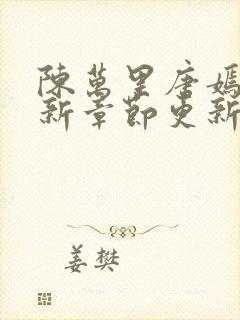 陳萬里唐嫣
新章節更新
姜樊